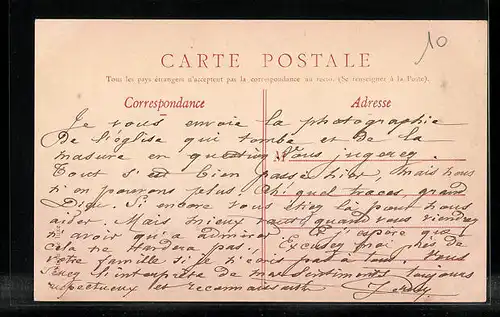 10
CARTE POSTALE
Tous les pays étrangers n'acceptent pas la correspondance au recto. (Se renseigner à la Poste).
Correspondance
Adresse
Je vous envoie la photographie
De l'église qui tombe et de la
masure en question. Vous jugerez
Tout s'est bien passé hier, mais nous
n'en pouvons plus. Ah! quel tracas grand
Dieu. Si encore vous étiez là pour nous
aider. Mais mieux vaut quand vous viendrez
n'avoir qu'à admirer. Et j'espère que
cela ne tardera pas. Excusez moi près de
votre famille si je n'écris pas à tous. Vous
serez l'interprète de mes sentiments toujours
respectueux et reconnaissants